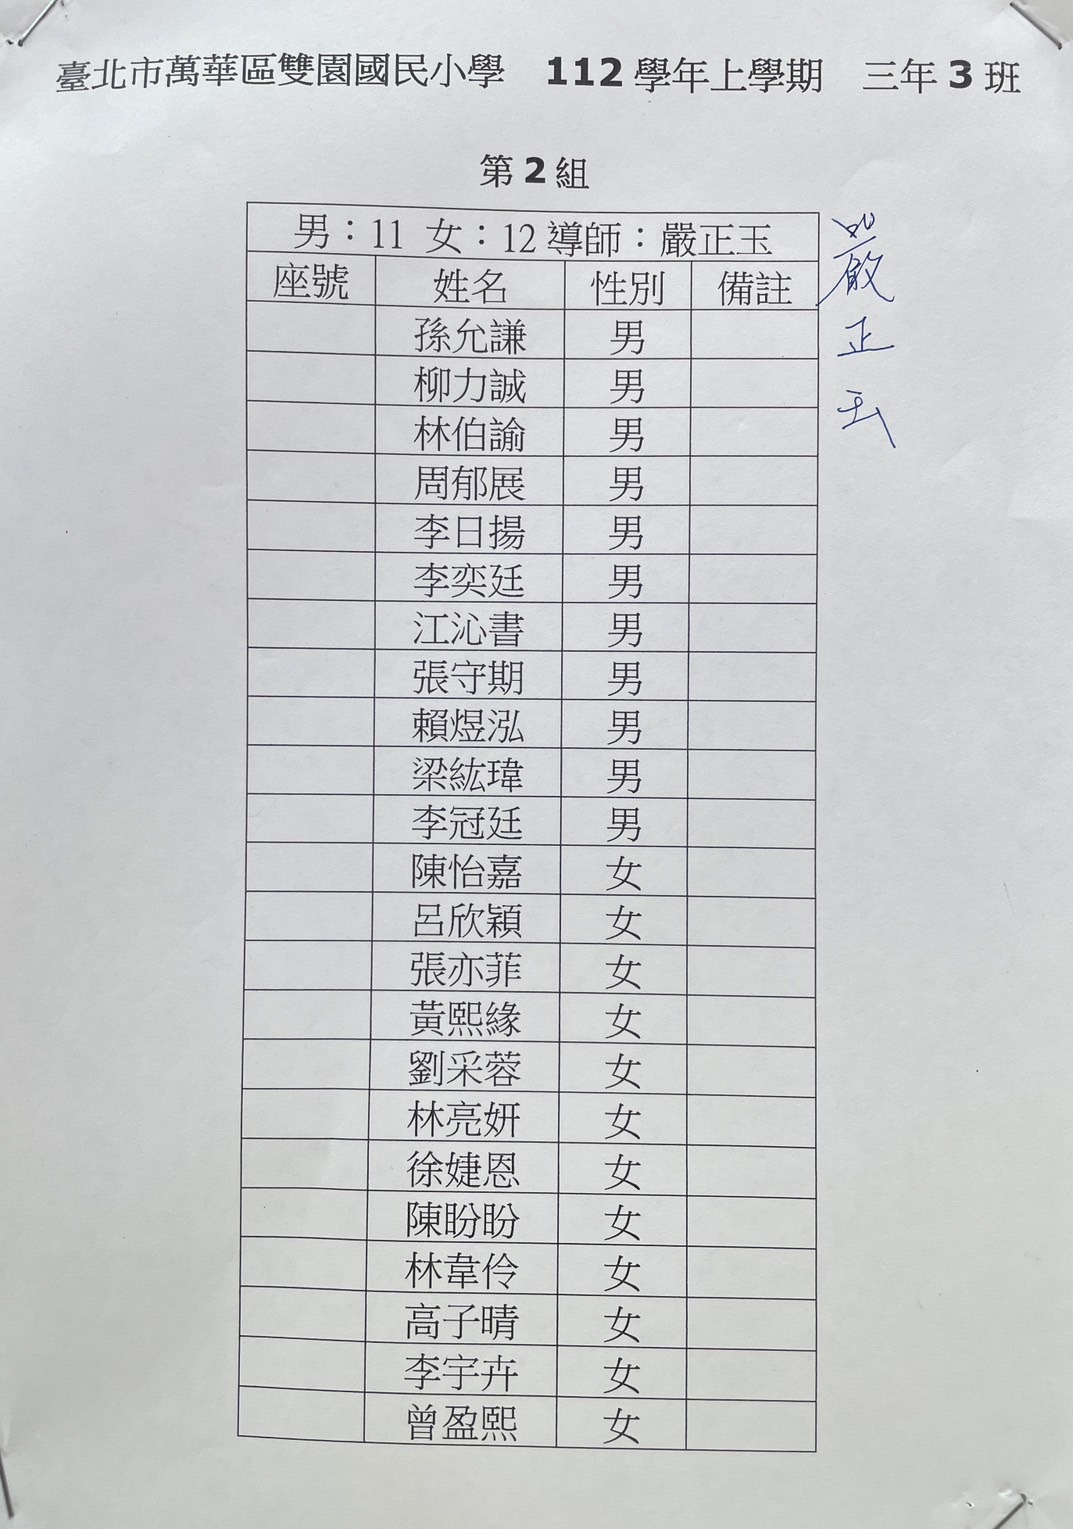 臺北市萬華區雙園國民小學 112 學年上學期 三年 3 班
第 2 組
男：11 女：12 導師：嚴正玉
座號 姓名 性別 備註
孫允謙 男
柳力誠 男
林伯諭 男
周郁展 男
李日揚 男
李奕廷 男
江沁書 男
張守期 男
賴煜泓 男
梁紘瑋 男
李冠廷 男
陳怡嘉 女
呂欣穎 女
張亦菲 女
黃熙緣 女
劉采蓉 女
林亮妍 女
徐婕恩 女
陳盼盼 女
林韋伶 女
高子晴 女
李宇卉 女
曾盈熙 女
嚴正玉